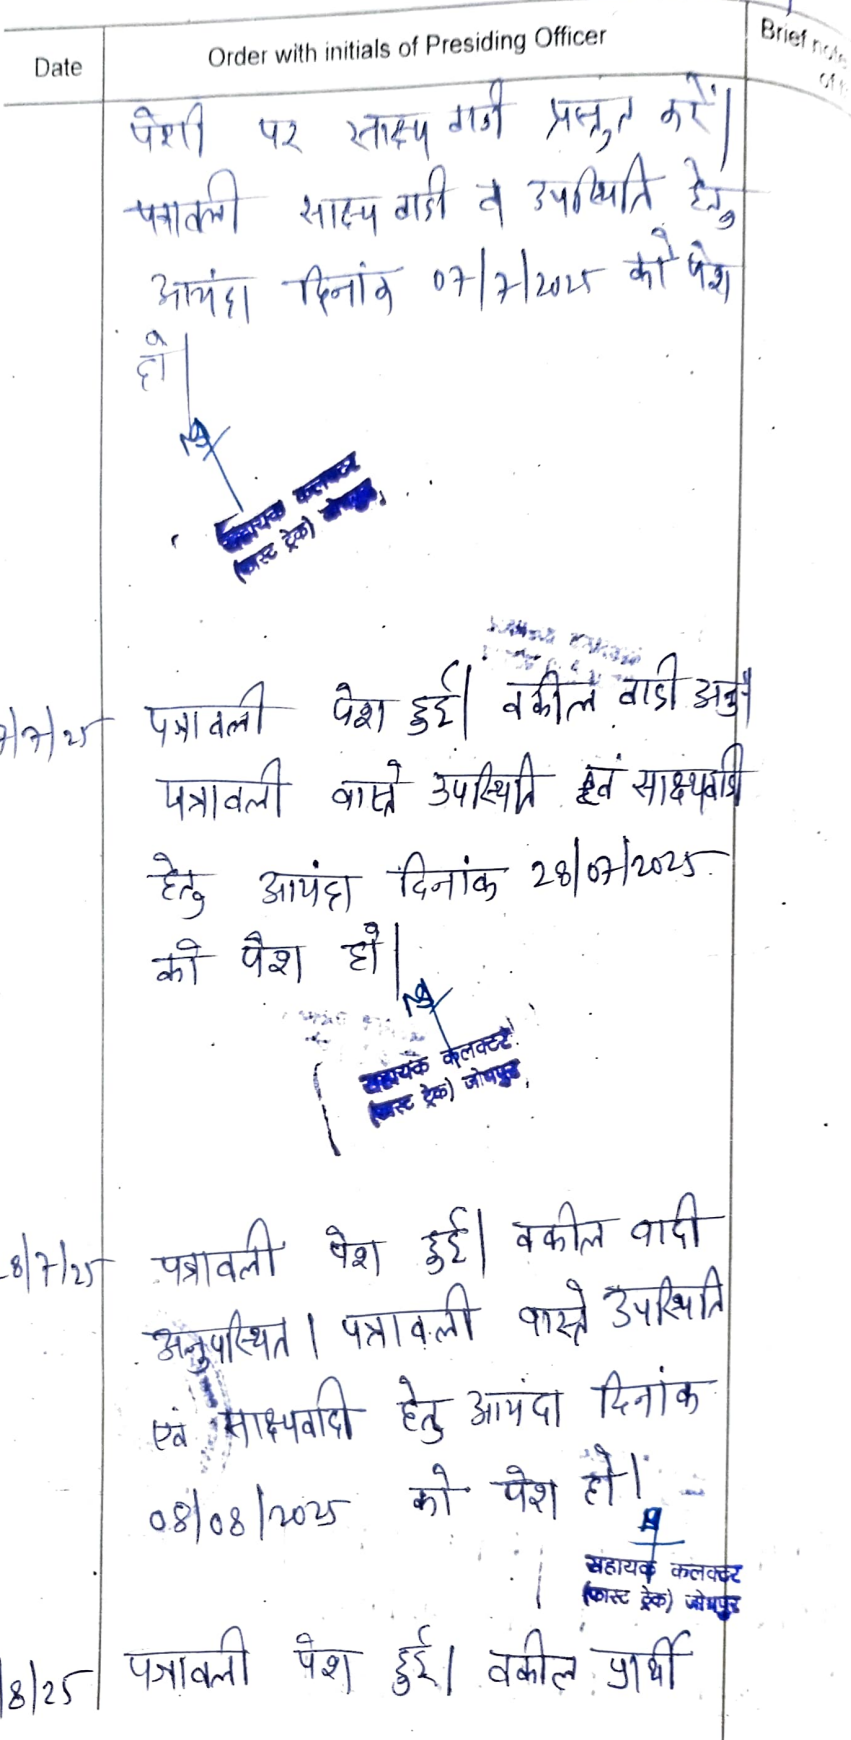 Date
Order with initials of Presiding Officer
Brief note
of
पेशी पर साक्ष्य वादी प्रस्तुत करें।
पत्रावली साक्ष्य वादी व उपस्थिति हेतु
आयंदा दिनांक 07/7/2025 को पेश
हो।
सहायक कलक्टर
(फास्ट ट्रेक) जोधपुर
7/7/25 पत्रावली पेश हुई। वकील वादी अनु॰
पत्रावली वास्ते उपस्थिति एवं साक्ष्यवादी
हेतु आयंदा दिनांक 28/07/2025
को पेश हो।
सहायक कलक्टर
(फास्ट ट्रेक) जोधपुर
8/7/25 पत्रावली पेश हुई। वकील वादी
अनुपस्थित। पत्रावली वास्ते उपस्थिति
एवं साक्ष्यवादी हेतु आयंदा दिनांक
08/08/2025 को पेश हो।
सहायक कलक्टर
(फास्ट ट्रेक) जोधपुर
/8/25 पत्रावली पेश हुई। वकील प्रार्थी